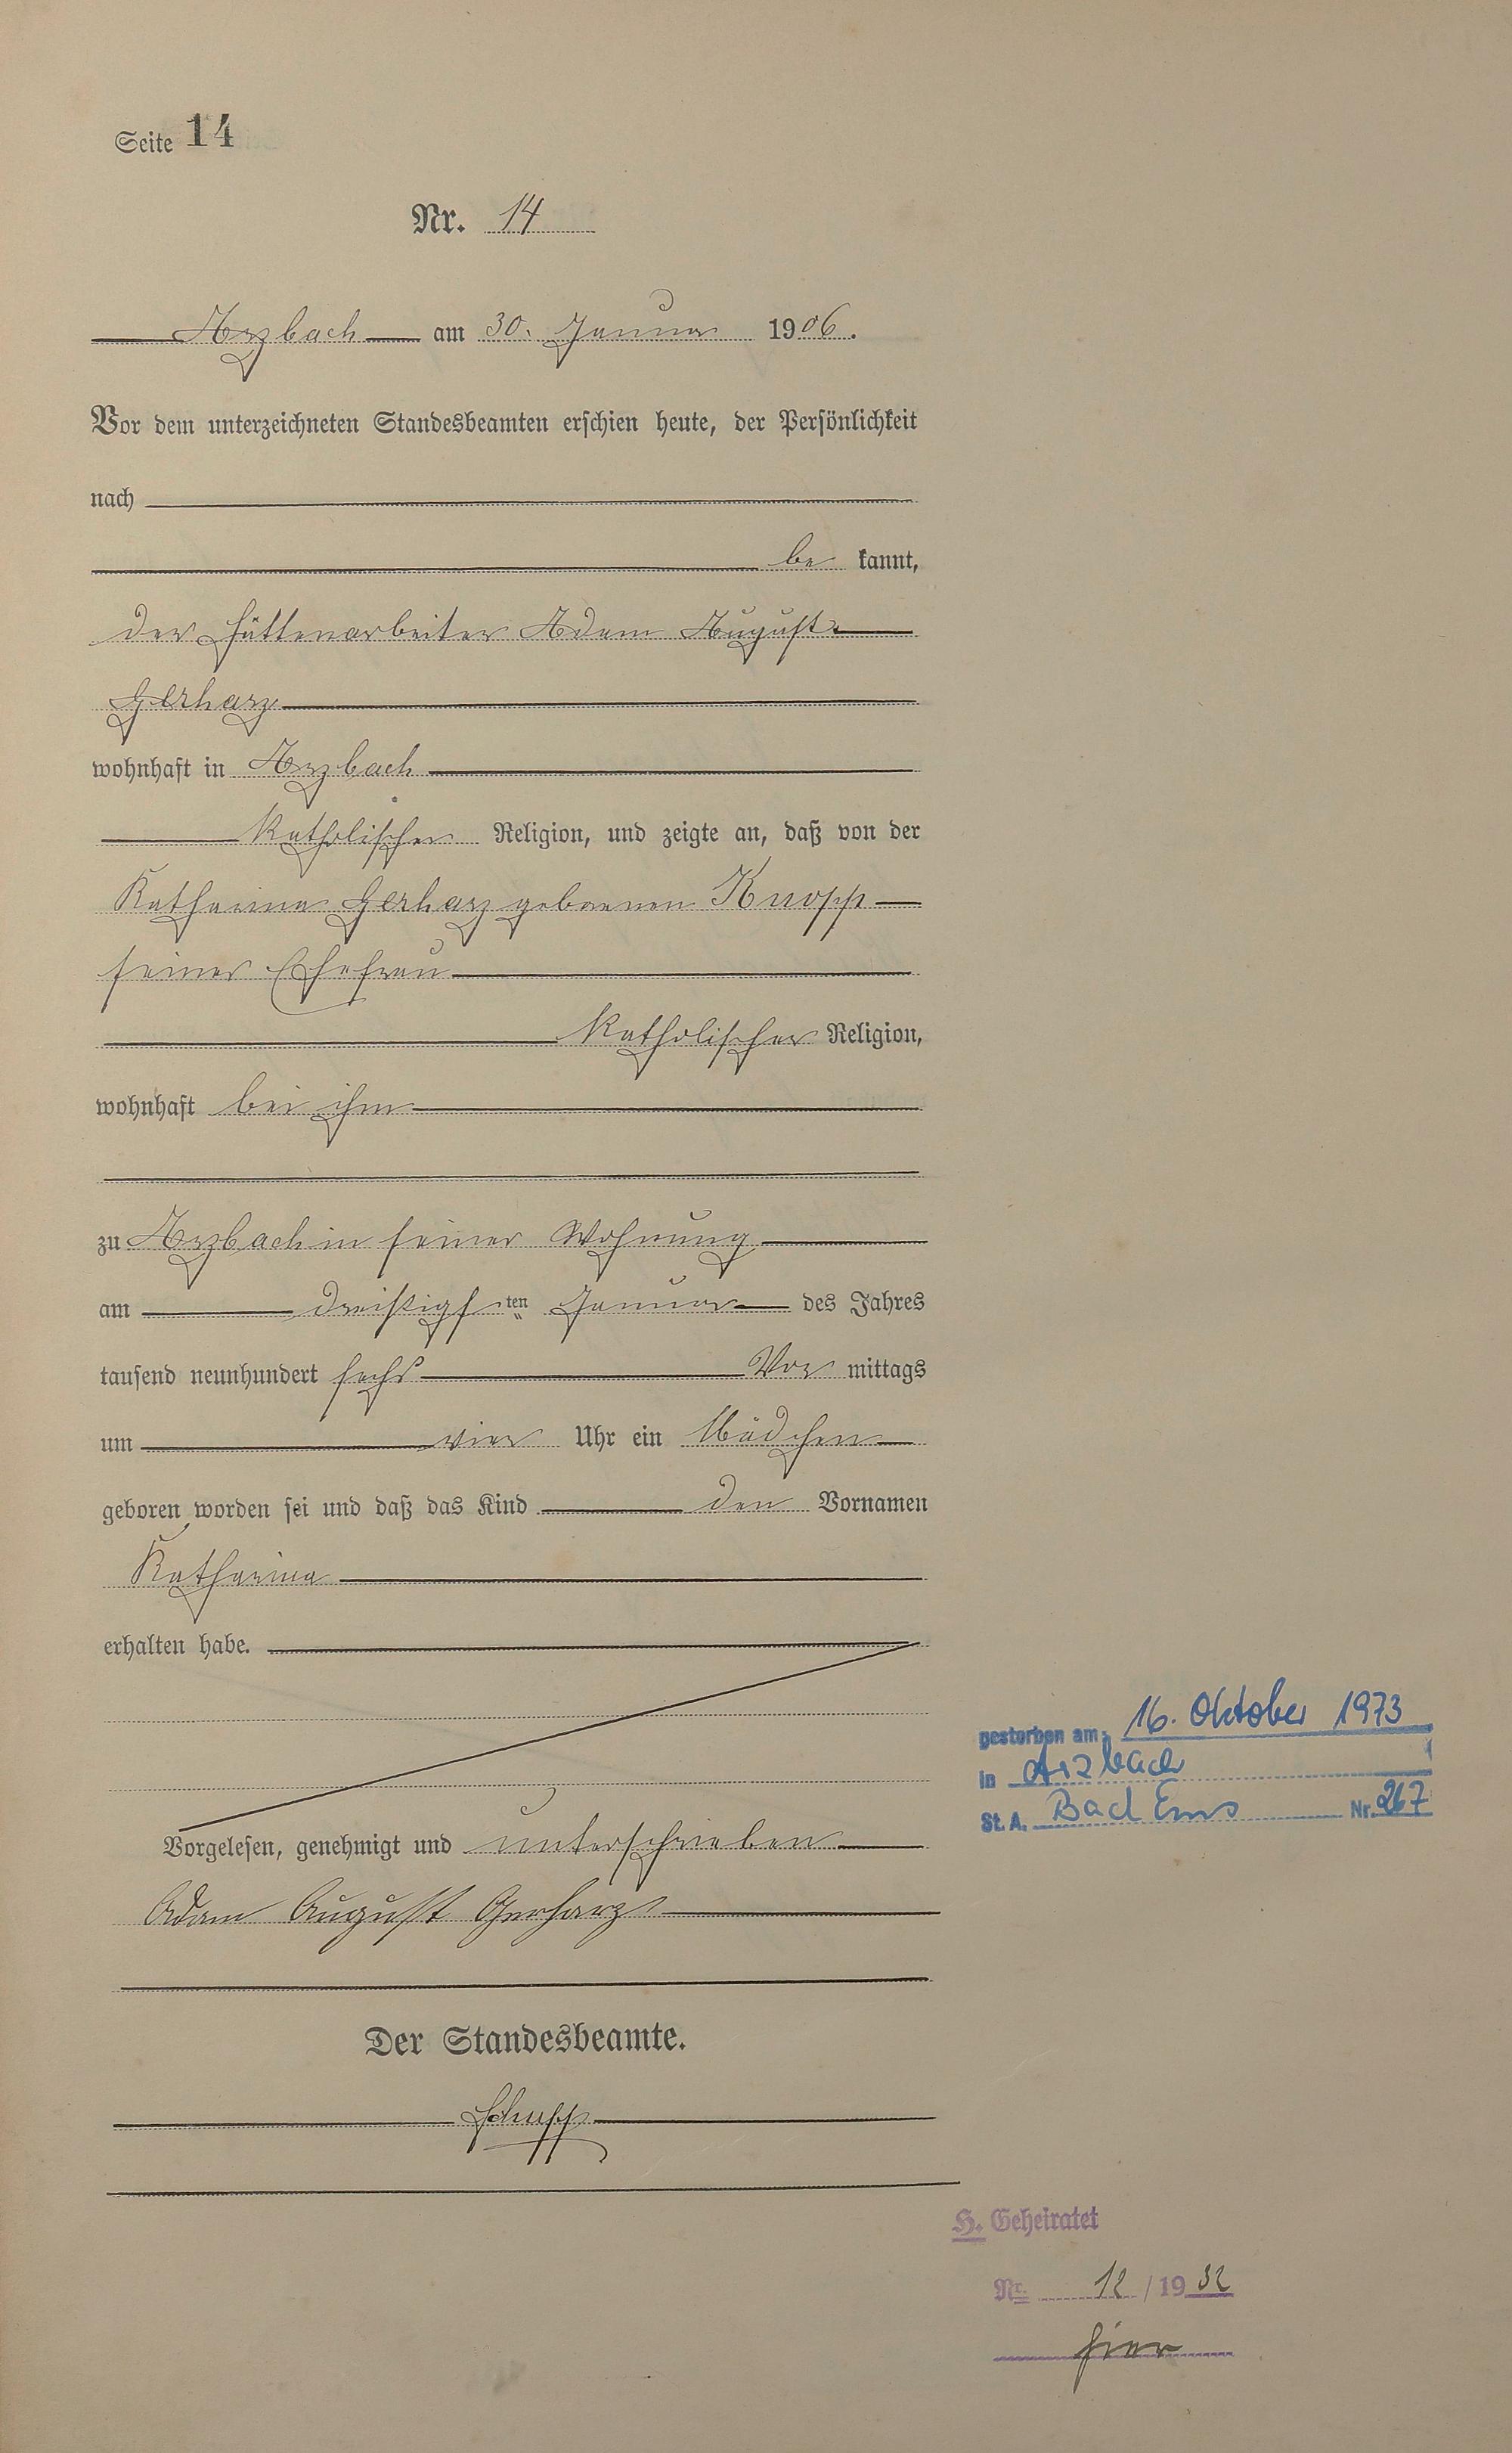 Seite 14
Nr. 14
Arzbach am 30. Januar 1906.
Vor dem unterzeichneten Standesbeamten erschien heute, der Persönlichkeit
nach
be kannt,
der Hüttenarbeiter Adam August
Gerharz
wohnhaft in Arzbach
katholischer Religion, und zeigte an, daß von der
Katharina Gerharz geborenen Knopp
seiner Ehefrau
katholischer Religion,
wohnhaft bei ihm
zu Arzbach in seiner Wohnung
am dreißigsten Januar des Jahres
tausend neunhundert sechs Vor mittags
um vier Uhr ein Mädchen
geboren worden sei und daß das Kind den Vornamen
Katharina
erhalten habe.
Vorgelesen, genehmigt und unterschrieben
Adam August Gerharz
Der Standesbeamte.
Schupp
gestorben am: 16. Oktober 1973
in Arzbach
St. A. Bad Ems Nr. 267
H. Geheiratet
Nr. 12 / 1932
hier